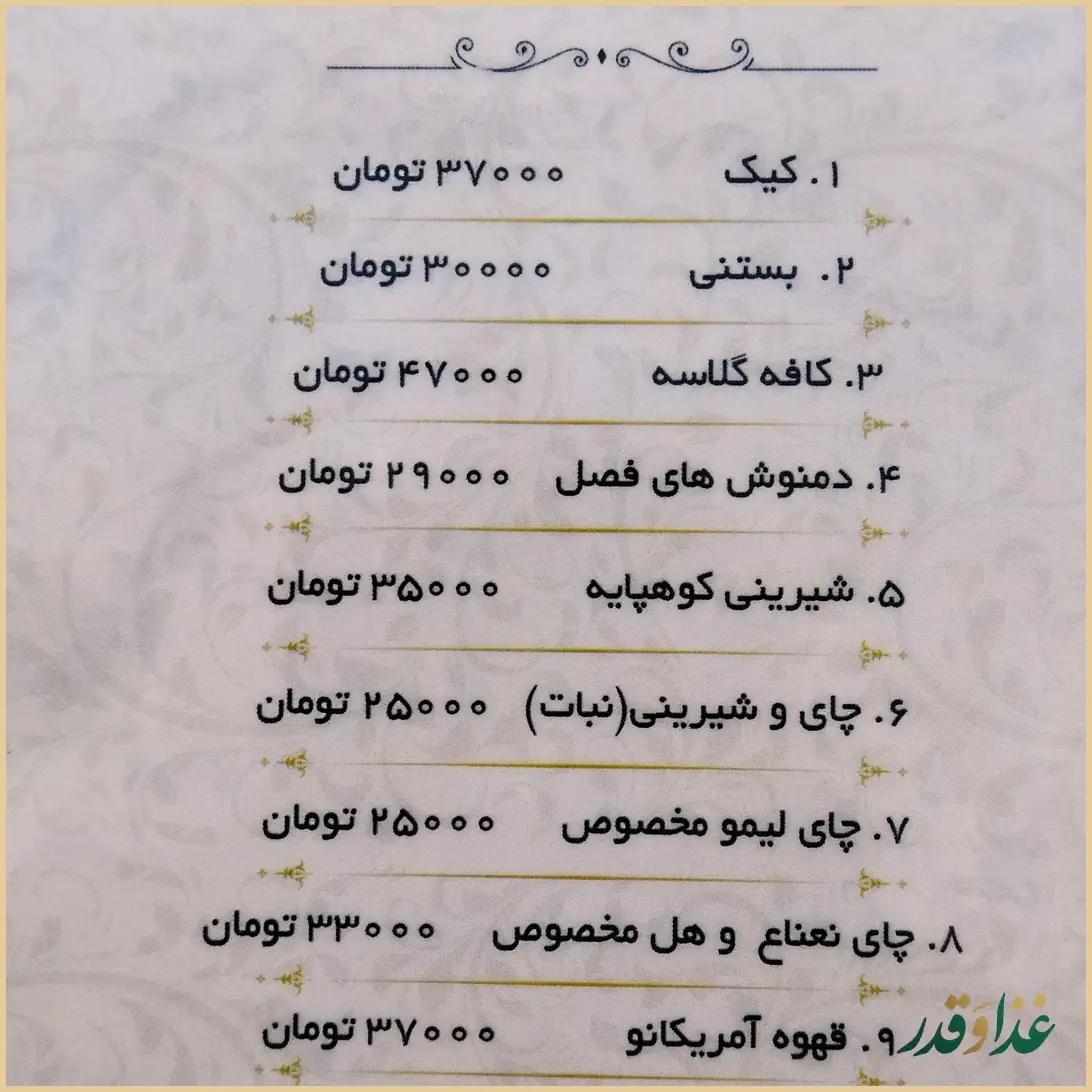 ۱. کیک ۳۷۰۰۰ تومان
۲. بستنی ۳۰۰۰۰ تومان
۳. کافه گلاسه ۴۷۰۰۰ تومان
۴. دمنوش های فصل ۲۹۰۰۰ تومان
۵. شیرینی کوهپایه ۳۵۰۰۰ تومان
۶. چای و شیرینی(نبات) ۲۵۰۰۰ تومان
۷. چای لیمو مخصوص ۲۵۰۰۰ تومان
۸. چای نعناع و هل مخصوص ۳۳۰۰۰ تومان
۹. قهوه آمریکانو ۳۷۰۰۰ تومان
غذا و قدر